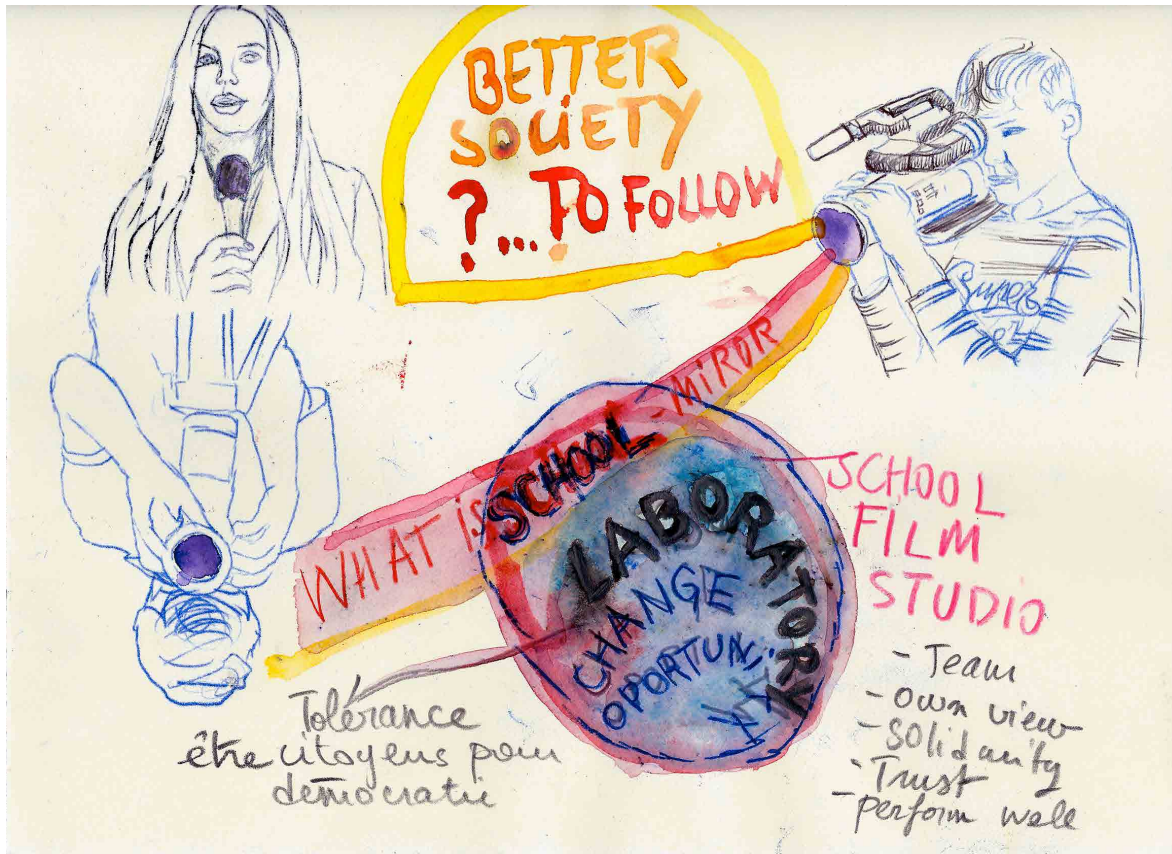 BETTER
SOCIETY
?...TO FOLLOW
WHAT is SCHOOL MiROR
LABORATORY
CHANGE
OPORTUNiTY
SCHOOL
FILM
STUDIO
- Team
- own view
- solidarity
- Trust
- perform well
Tolérance
être citoyens pour
démocratie